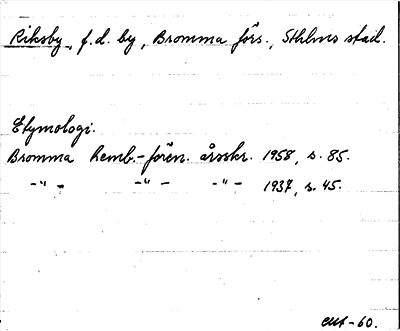 Riksby, f.d. by, Bromma förs., Sthlms stad.
Etymologi.
Bromma Hemb.-fören. årsskr. 1958, s. 85.
-"- -"- -"- 1937, s. 45.
-60.